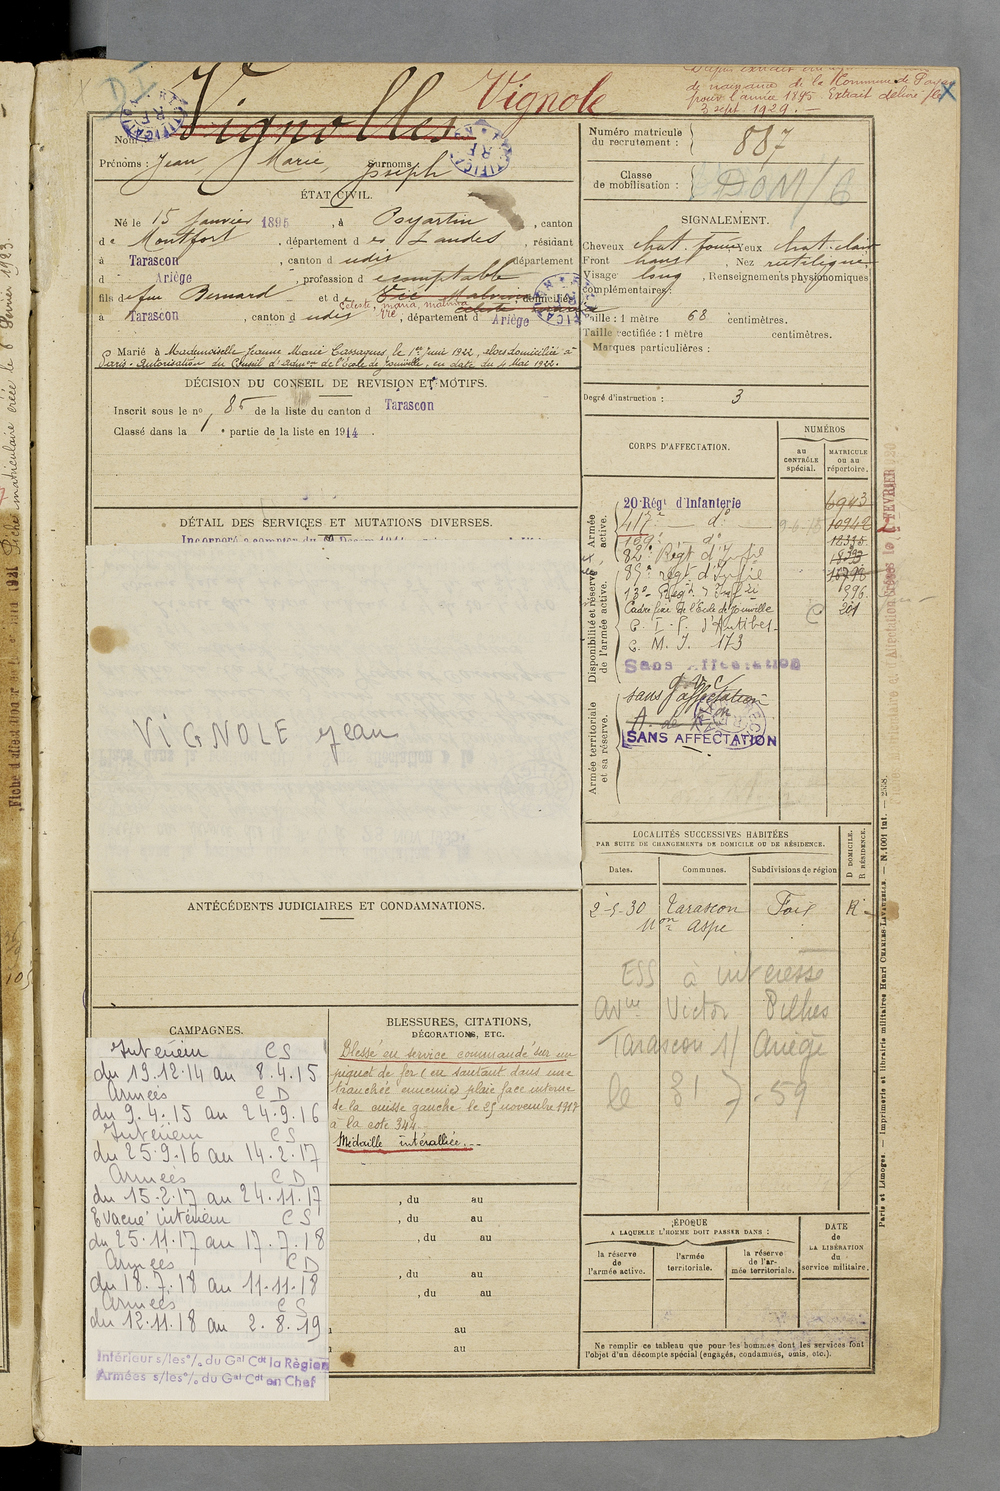 D.I.
Vignolles Vignole
de naissance de la Commune de
pour l'année 1895 Extrait délivré le
3 sept. 1929. —
Nom
Prénoms : Jean, Marie, Joseph Surnoms
ÉTAT CIVIL.
Né le 15 Janvier 1895, à Poyartin, canton
de Montfort, département des Landes, résidant
à Tarascon, canton d udit, département
d Ariège, profession d e comptable
fils de feu Bernard et de domicilié
Celeste, maria, malvina
à Tarascon, canton d udit, département d Ariège
Marié à Mademoiselle Jeanne Marie Cassagnes, le 1er Juin 1922, alors domiciliée à
Paris. Autorisation du Conseil d'Admon de l'Ecole de Joinville, en date du 4 Mai 1922.
DÉCISION DU CONSEIL DE REVISION ET MOTIFS.
Inscrit sous le no 85 de la liste du canton d Tarascon
Classé dans la 1 partie de la liste en 1914.
DÉTAIL DES SERVICES ET MUTATIONS DIVERSES.
VIGNOLE Jean
ANTÉCÉDENTS JUDICIAIRES ET CONDAMNATIONS.
CAMPAGNES.
Intérieur CS
du 19.12.14 au 8.4.15
Armées CD
du 9.4.15 au 24.9.16
Intérieur CS
du 25.9.16 au 14.2.17
Armées CD
du 15.2.17 au 24.11.17
Evacué intérieur CS
du 25.11.17 au 17.7.18
Armées CD
du 18.7.18 au 11.11.18
Armées CS
du 12.11.18 au 2.8.19
Intérieur s/les°/. du Gal Cdt la Région
Armées s/les°/. du Gal Cdt en Chef
BLESSURES, CITATIONS,
DÉCORATIONS, ETC.
Blessé en service commandé sur un
piquet de fer (en sautant dans une
tranchée ennemie) plaie face interne
de la cuisse gauche le 25 novembre 1917
à la cote 344
Médaille intéralliée. --
, du au
, du au
, du au
, du au
, du au
au
au
Numéro matricule
du recrutement : 887
Classe
de mobilisation : DOM/6
SIGNALEMENT.
Cheveux chat. foncé Yeux chat. clair
Front haut, Nez rectiligne
Visage long, Renseignements physionomiques
complémentaires :
Taille : 1 mètre 68 centimètres.
Taille rectifiée : 1 mètre centimètres.
Marques particulières :
Degré d'instruction : 3
CORPS D'AFFECTATION.
NUMÉROS
au
CONTRÔLE
spécial.
MATRICULE
ou au
répertoire.
Armée
active.
Disponibilité et réserve
de l'armée active.
Armée territoriale
et sa réserve.
20 Régt d'Infanterie 6943
417e — do 10942
159e — do 12335
82e Régt d'Infie
89e régt d'infie
13e Régt d'Infie 996
Cadre fixe de l'Ecole de Joinville C 201
C. I. P. d'Antibes
C. M. I. 173
Sans affectation
sans affectation
SANS AFFECTATION
LOCALITÉS SUCCESSIVES HABITÉES
PAR SUITE DE CHANGEMENTS DE DOMICILE OU DE RÉSIDENCE.
Dates. Communes. Subdivisions de région
D DOMICILE.
R RÉSIDENCE.
2-5-30 Tarascon Foix R
Mon Aspe
ESS à intéressé
Avue Victor Pilhes
Tarascon s/ Ariège
le 31 7.59
ÉPOQUE
A LAQUELLE L'HOMME DOIT PASSER DANS :
la réserve
de
l'armée active.
l'armée
territoriale.
la réserve
de l'ar-
mée territoriale.
DATE
de
LA LIBÉRATION
du
service militaire.
Ne remplir ce tableau que pour les hommes dont les services font
l'objet d'un décompte spécial (engagés, condamnés, omis, etc.).
Paris et Limoges. — Imprimerie et librairie militaires Henri CHARLES-LAVAUZELLE. — N. 1001 int. — 2538.